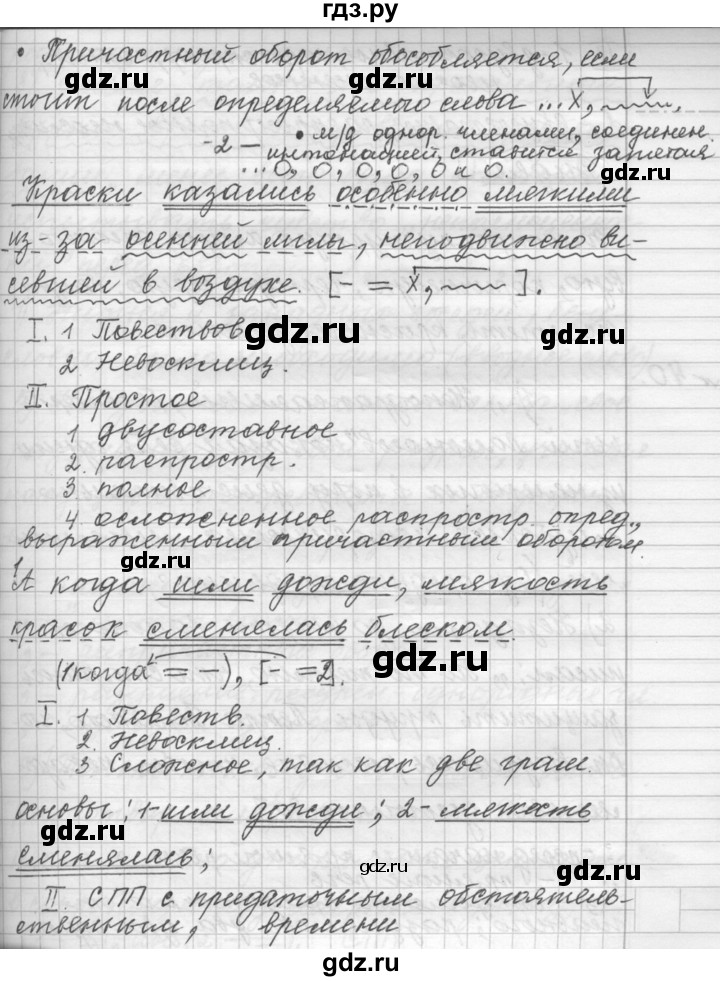 гдз.ру
• Причастный оборот обособляется, если
стоит после определяемого слова ... X, ﹏﹏.
- 2 — • м/д однор. членами, соединен.
интонацией, ставится запятая
... О, О, О, О, О и О.
Краски казались особенно мягкими
из-за осенней мглы, неподвижно ви-
севшей в воздухе. [- = X, ﹏﹏ ].
I. 1 Повествов
2. Невосклиц.
II. Простое
1 двусоставное
2. распростр.
3 полное
4. осложненное распростр. опред.,
выраженным причастным оборотом.
А когда шли дожди, мягкость
красок сменялась блеском.
(1когда = -), [- =2].
I. 1 Повеств.
2. Невосклиц.
3 Сложное, так как две грам.
основы: 1-шли дожди; 2- мяжость
сменялась;
II. СПП с придаточным обстоятель-
ственным, времени
gdz.ru
gdz.ru
gdz.ru
gdz.ru
gdz.ru
gdz.ru
gdz.ru
gdz.ru
gdz.ru
gdz.ru
gdz.ru
gdz.ru